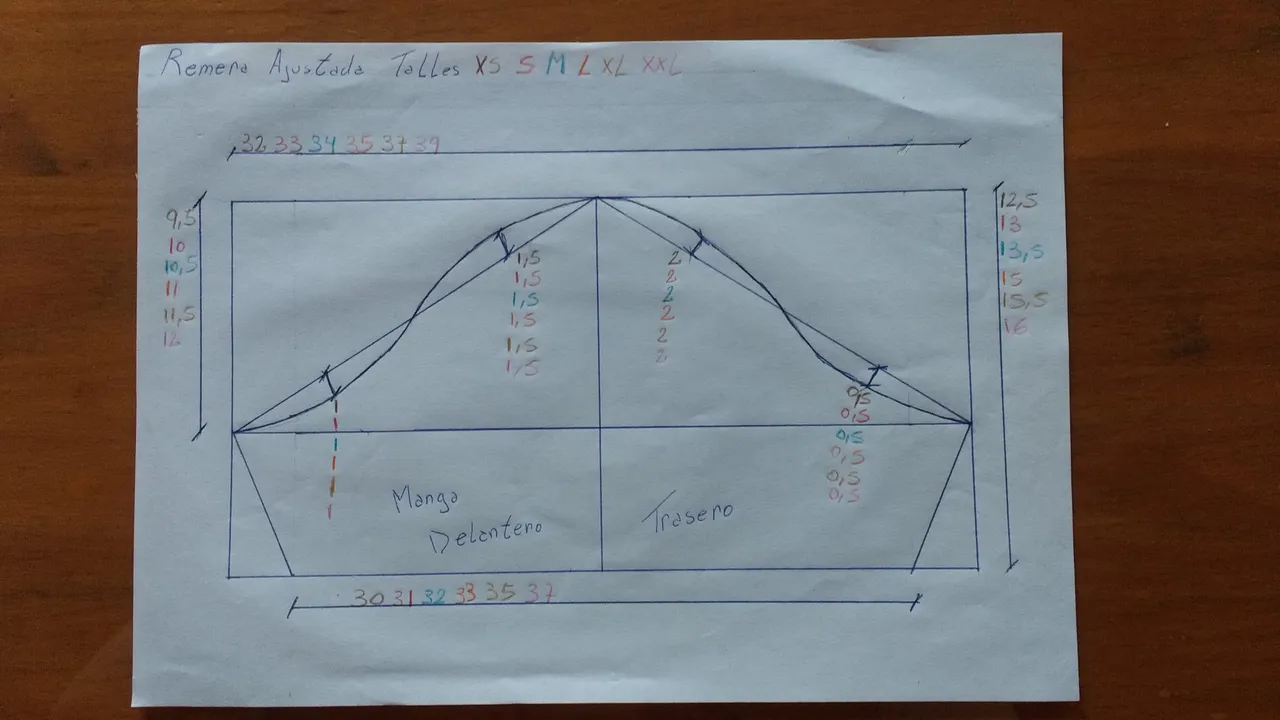 Remera Ajustada Talles XS S M L XL XXL
32 33 34 35 37 39
9,5
10
10,5
11
11,5
12
12,5
13
13,5
15
15,5
16
1,5
1,5
1,5
1,5
1,5
1,5
2
2
2
2
2
2
1
1
1
1
1
1
0,5
0,5
0,5
0,5
0,5
0,5
Manga
Delantero
Trasero
30 31 32 33 35 37